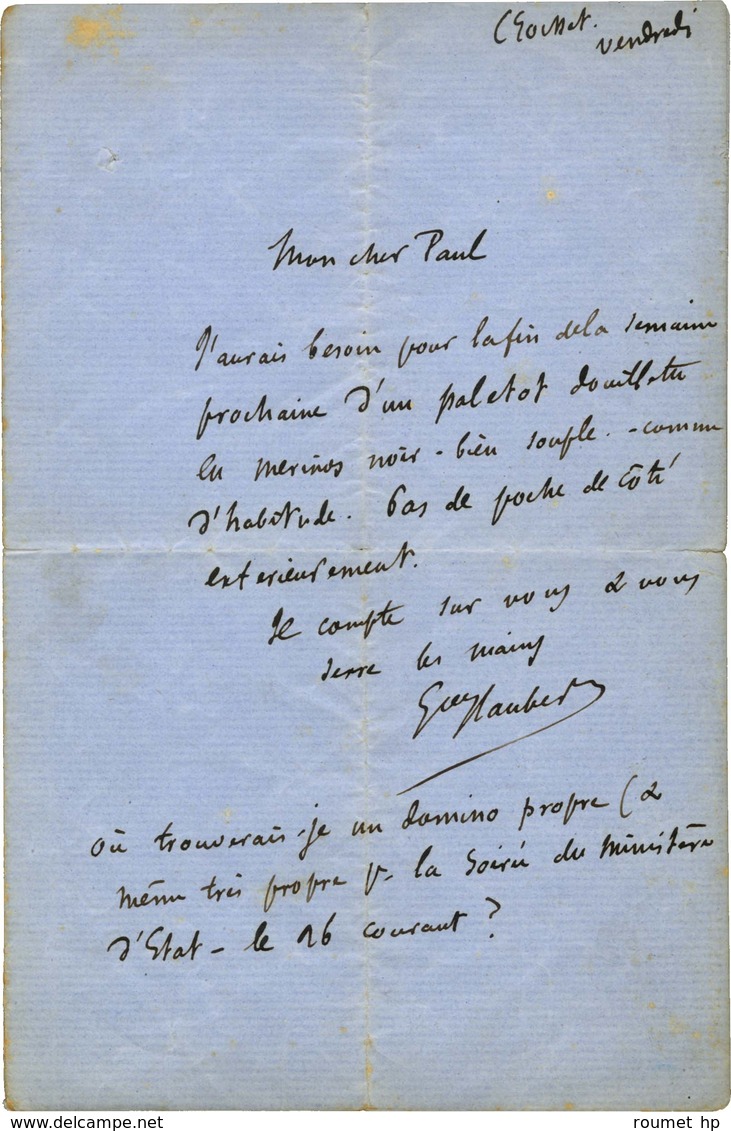 Croisset.
vendredi
Mon cher Paul
J'aurais besoin pour la fin de la semaine
prochaine d'un paletot douillette
en merinos noir - bien souple. - comme
d'habitude. Pas de poche de côté
exterieurement.
Je compte sur vous & vous
serre les mains
Gve Flaubert
où trouverais-je un domino propre (&
même très propre p. la Soirée du Ministère
d'Etat - le 26 courant ?
www.delcampe.net
roumet hp